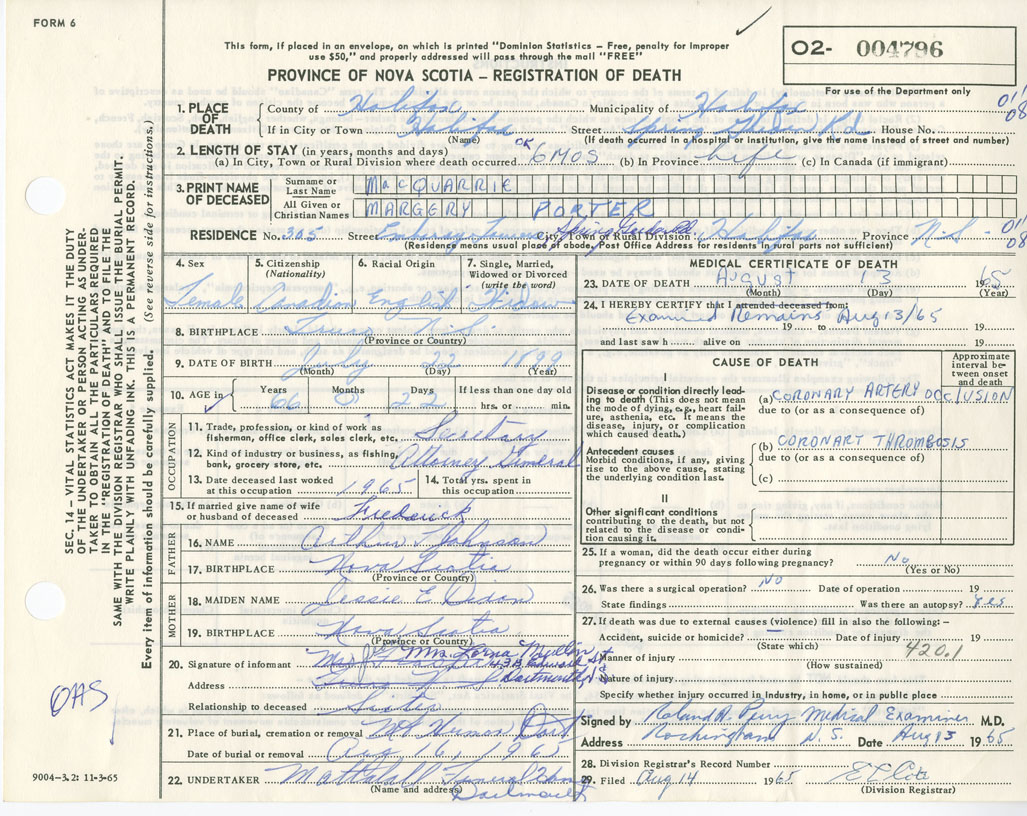 FORM 6
This form, if placed in an envelope, on which is printed "Dominion Statistics – Free, penalty for improper
use $50," and properly addressed will pass through the mail "FREE"
PROVINCE OF NOVA SCOTIA – REGISTRATION OF DEATH
O2- 004796
For use of the Department only
SEC. 14 – VITAL STATISTICS ACT MAKES IT THE DUTY
OF THE UNDERTAKER OR PERSON ACTING AS UNDER-
TAKER TO OBTAIN ALL THE PARTICULARS REQUIRED
IN THE "REGISTRATION OF DEATH" AND TO FILE THE
SAME WITH THE DIVISION REGISTRAR WHO SHALL ISSUE THE BURIAL PERMIT.
WRITE PLAINLY WITH UNFADING INK. THIS IS A PERMANENT RECORD.
Every item of information should be carefully supplied. (See reverse side for instructions.)
1. PLACE OF DEATH County of Halifax Municipality of Halifax
If in City or Town Halifax Street Spring Garden Rd. House No.
(Name) (If death occurred in a hospital or institution, give the name instead of street and number)
2. LENGTH OF STAY (in years, months and days)
(a) In City, Town or Rural Division where death occurred OK 6 MOS. (b) In Province Life (c) In Canada (if immigrant)
3. PRINT NAME OF DECEASED Surname or Last Name MacQUARRIE
All Given or Christian Names MARGERY PORTER
RESIDENCE No. 305 Street Embassy Towers Spring Garden Rd City, Town or Rural Division Halifax Province N.S.
(Residence means usual place of abode, Post Office Address for residents in rural parts not sufficient)
4. Sex 5. Citizenship (Nationality) 6. Racial Origin 7. Single, Married, Widowed or Divorced (write the word)
Female Canadian English Widow
8. BIRTHPLACE Truro N.S.
(Province or Country)
9. DATE OF BIRTH July 22 1899
(Month) (Day) (Year)
10. AGE in Years Months Days If less than one day old
66 0 22 hrs. or min.
OCCUPATION
11. Trade, profession or kind of work as fisherman, office clerk, sales clerk, etc. Secretary
12. Kind of industry or business, as fishing, bank, grocery store, etc. Attorney General
13. Date deceased last worked at this occupation 1965 14. Total yrs. spent in this occupation
15. If married give name of wife or husband of deceased Frederick
FATHER
16. NAME Arthur Johnson
17. BIRTHPLACE Nova Scotia
(Province or Country)
MOTHER
18. MAIDEN NAME Jessie E Dixon
19. BIRTHPLACE Nova Scotia
(Province or Country)
20. Signature of informant Mrs. Lorna
Address Dartmouth
Relationship to deceased Sister
21. Place of burial, cremation or removal Mt Hermon Dart
Date of burial or removal Aug 16, 1965
22. UNDERTAKER Mattatall Funeral Home
(Name and address) Dartmouth
OAS
9004-3.2: 11-3-65
MEDICAL CERTIFICATE OF DEATH
23. DATE OF DEATH August 13 1965
(Month) (Day) (Year)
24. I HEREBY CERTIFY that I attended deceased from:
Examined Remains Aug 13/65
19 to 19
and last saw h alive on 19
CAUSE OF DEATH
Approximate interval between onset and death
I
Disease or condition directly leading to death (This does not mean the mode of dying, e.g., heart failure, asthenia, etc. It means the disease, injury, or complication which caused death.)
(a) CORONARY ARTERY OCCLUSION
due to (or as a consequence of)
Antecedent causes
Morbid conditions, if any, giving rise to the above cause, stating the underlying condition last.
(b) CORONARY THROMBOSIS
due to (or as a consequence of)
(c)
II
Other significant conditions
contributing to the death, but not related to the disease or condition causing it.
25. If a woman, did the death occur either during
pregnancy or within 90 days following pregnancy? No
(Yes or No)
26. Was there a surgical operation? No Date of operation 19
State findings Was there an autopsy? Yes
27. If death was due to external causes (violence) fill in also the following:–
Accident, suicide or homicide? – Date of injury 19
(State which)
420.1
Manner of injury
(How sustained)
Nature of injury
Specify whether injury occurred in industry, in home, or in public place
Signed by Roland A. Perry Medical Examiner M.D.
Address Rockingham N.S. Date Aug 13 1965
28. Division Registrar's Record Number
29. Filed Aug 14 1965
(Division Registrar)